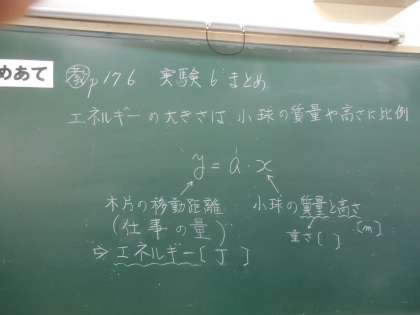 めあて
教p176 実験6 まとめ
エネルギーの大きさは 小球の質量や高さに比例
y = a・x
木片の移動距離 小球の質量と高さ
(仕事の量) 重さ[ ] [m]
⇒エネルギー[J]